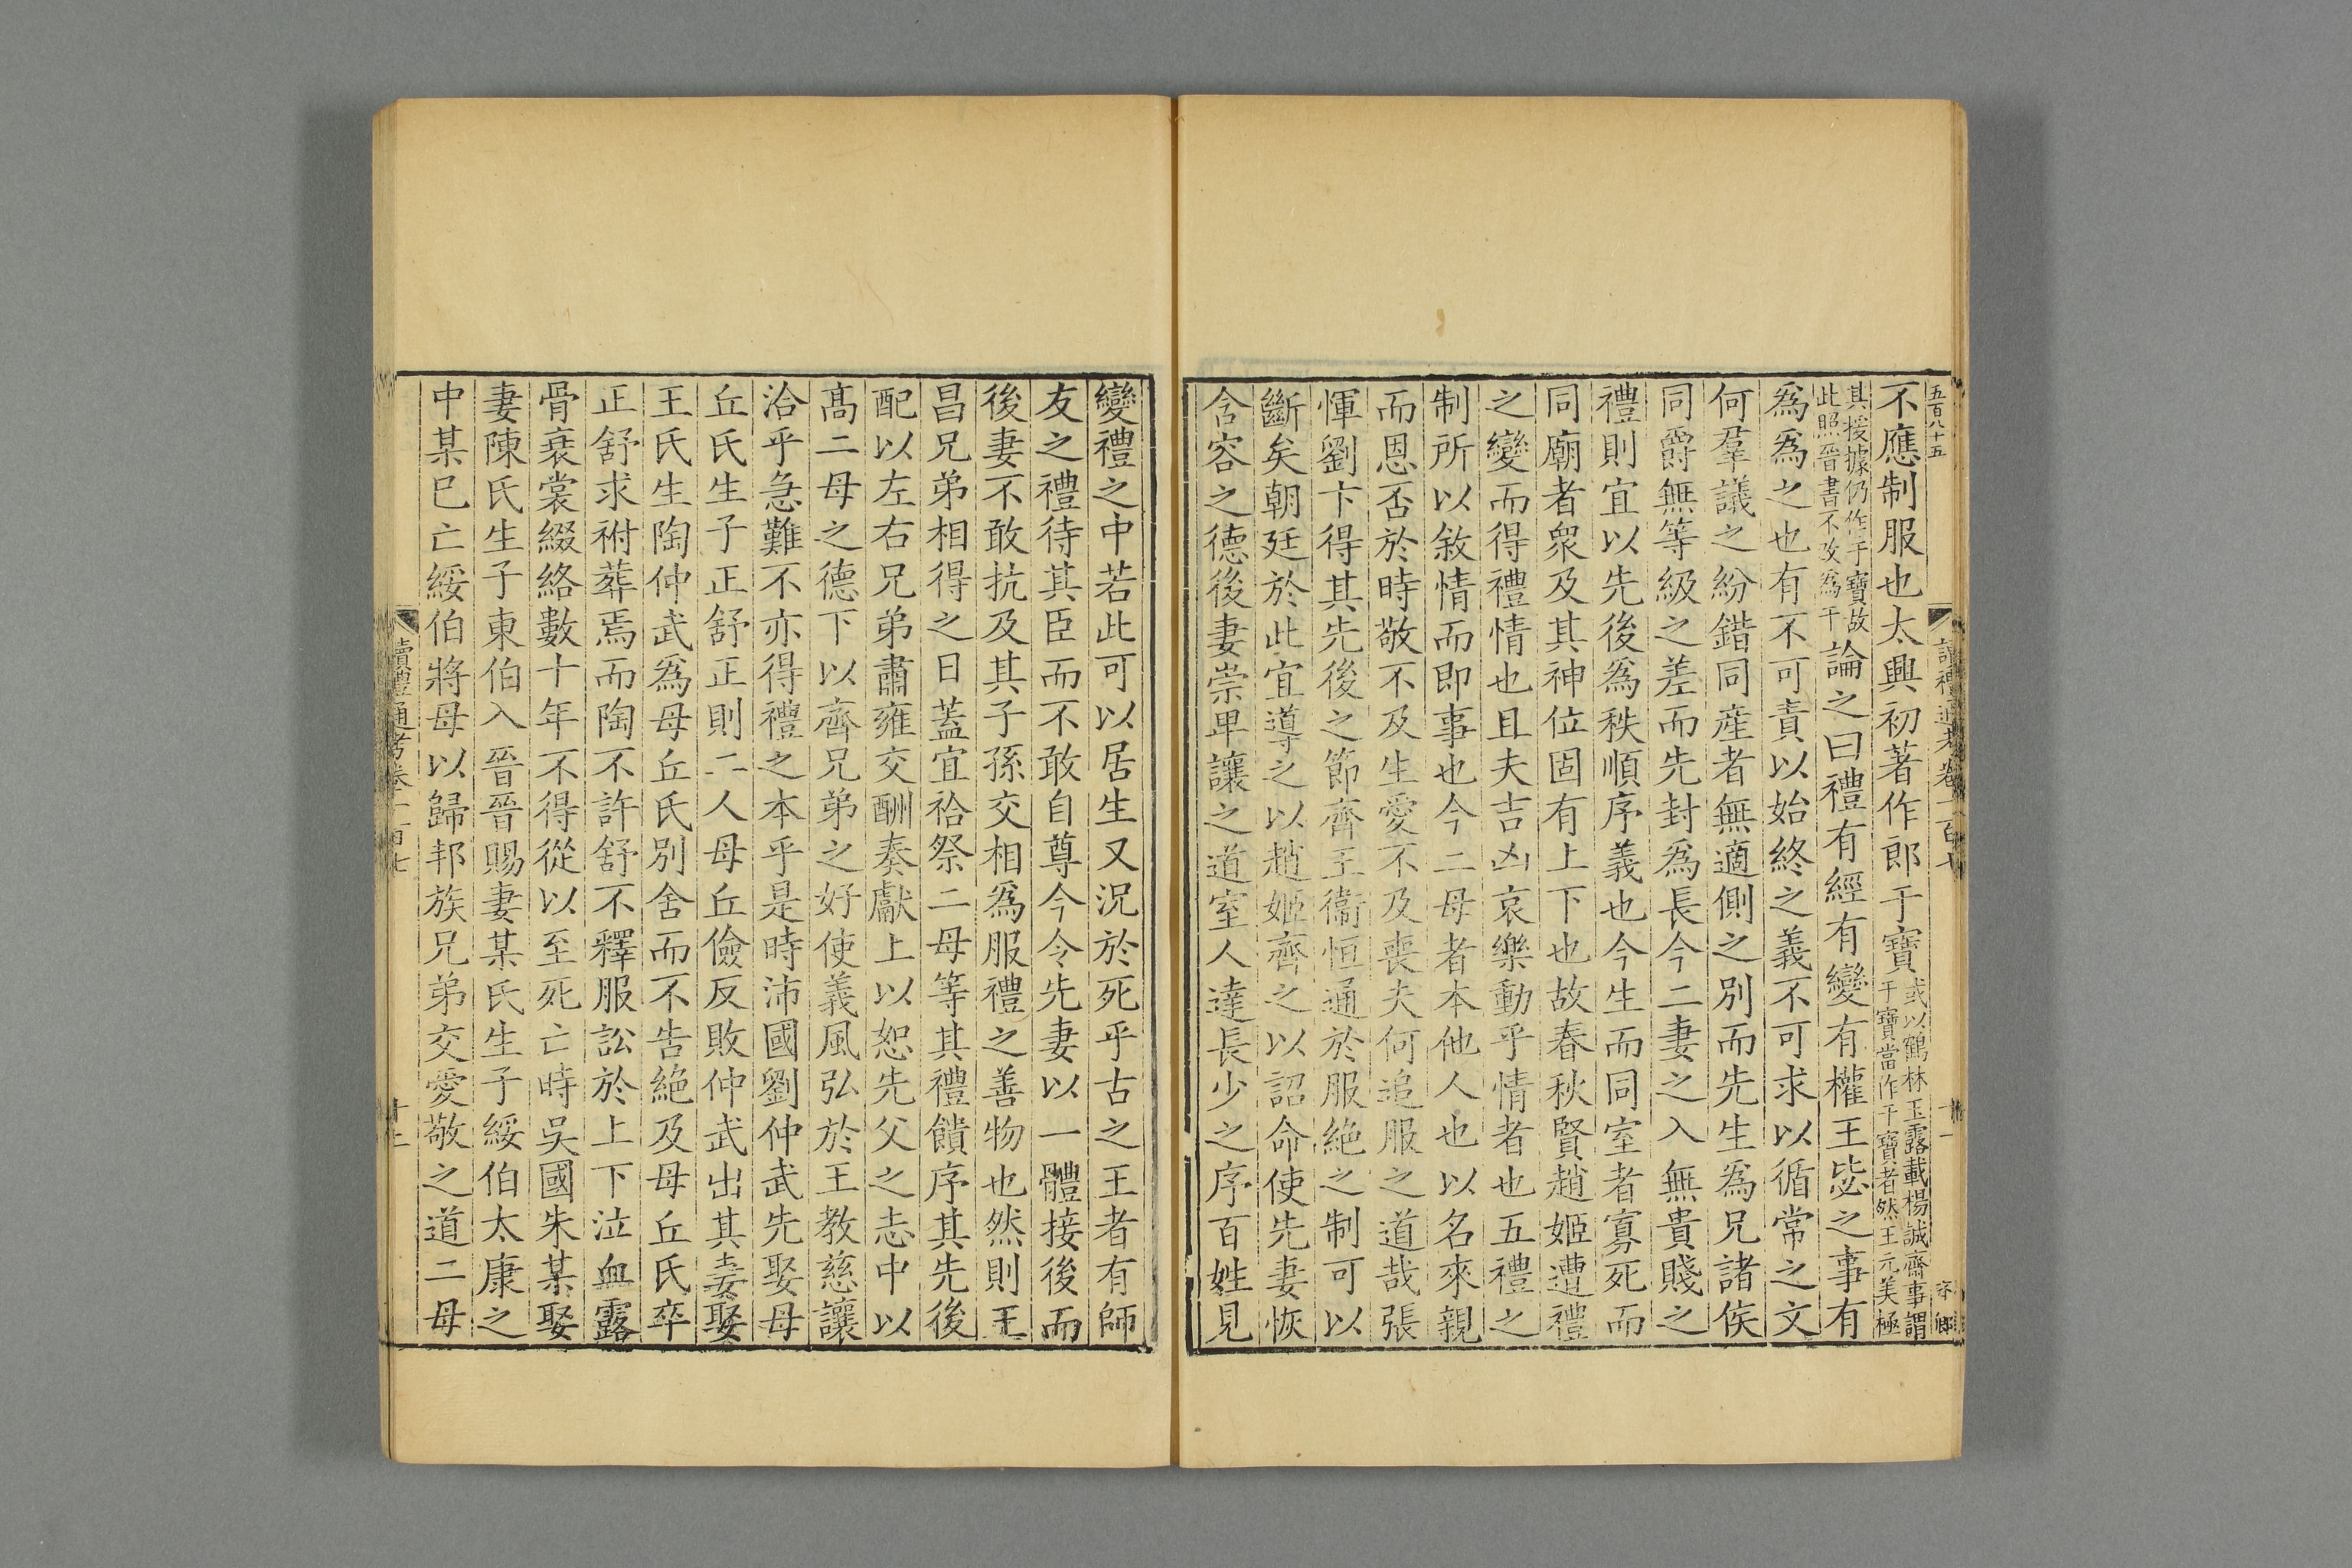 五百八十五
不應制服也太興初著作郎于寶或以鶴林玉露載楊誠齋事謂于寶當作干寶者然王元美極
其援據仍作于寶故此照晉書不攺爲干論之曰禮有經有變有權王毖之事有
爲爲之也有不可責以始終之義不可求以循常之文
何羣議之紛錯同産者無適側之別而先生爲兄諸侯
同爵無等級之差而先封爲長今二妻之入無貴賤之
禮則宜以先後爲秩順序義也今生而同室者寡死而
同廟者衆及其神位固有上下也故春秋賢趙姬遭禮
之變而得禮情也且夫吉凶哀樂動乎情者也五禮之
制所以敘情而即事也今二母者本他人也以名來親
而恩否於時敬不及生愛不及喪夫何追服之道哉張
惲劉卞得其先後之節齊王衞恒通於服絶之制可以
斷矣朝廷於此宜導之以趙姬齊之以詔命使先妻恢
含容之德後妻崇卑讓之道室人達長少之序百姓見
變禮之中若此可以居生又況於死乎古之王者有師
友之禮待其臣而不敢自尊今令先妻以一體接後而
後妻不敢抗及其子孫交相爲服禮之善物也然則王
昌兄弟相得之日蓋宜祫祭二母等其禮饋序其先後
配以左右兄弟肅雍交酬奏獻上以恕先父之志中以
髙二母之德下以齊兄弟之好使義風弘於王教慈讓
洽乎急難不亦得禮之本乎是時沛國劉仲武先娶毋
丘氏生子正舒正則二人母丘儉反敗仲武出其妻娶
王氏生陶仲武爲母丘氏別舍而不告絶及母丘氏卒
正舒求祔葬焉而陶不許舒不釋服訟於上下泣血露
骨衰裳綴絡數十年不得從以至死亡時吳國朱某娶
妻陳氏生子東伯入晉晉賜妻某氏生子綏伯太康之
中某已亡綏伯將母以歸邦族兄弟交愛敬之道二母
讀禮通考卷一百七